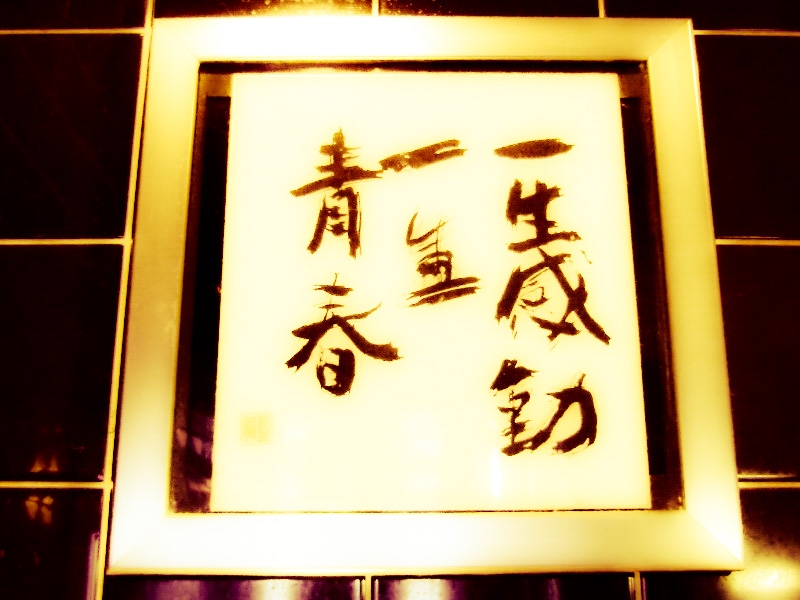 一生感動
一生
青春